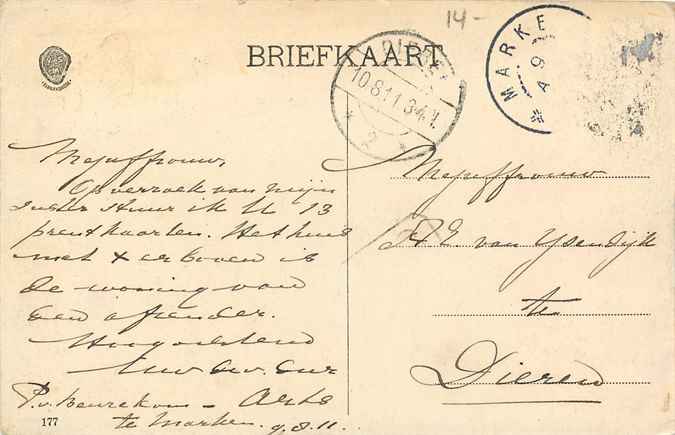 14-
BRIEFKAART
DIEREN
10.8.11. 3-4.V.
2
MARKE
A 9
Mejuffrouw,
Op verzoek van mijn
zuster stuur ik U 13
prentkaarten. Het huis
met + er boven is
de woning van
den afzender.
Hoogachtend
Uw dw. dnr
P. v. Beurekom
te Marken. 9.8.11.
177
Mejuffrouw
A. E. van IJsendijk
te
Dieren